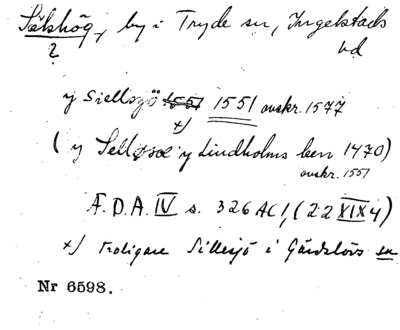 Sälshög, by i Tryde sn, Ingelstads
? hd
y Siellszö 1551 1551 avskr. 1577
x)
(y Selløsøe y Lindholms leen 1470)
avskr. 1551
Æ.D.A. IV s. 326 AC1, (22 XIX 4)
x) troligare Sillesjö i Gärdslövs sn
Nr 6598.